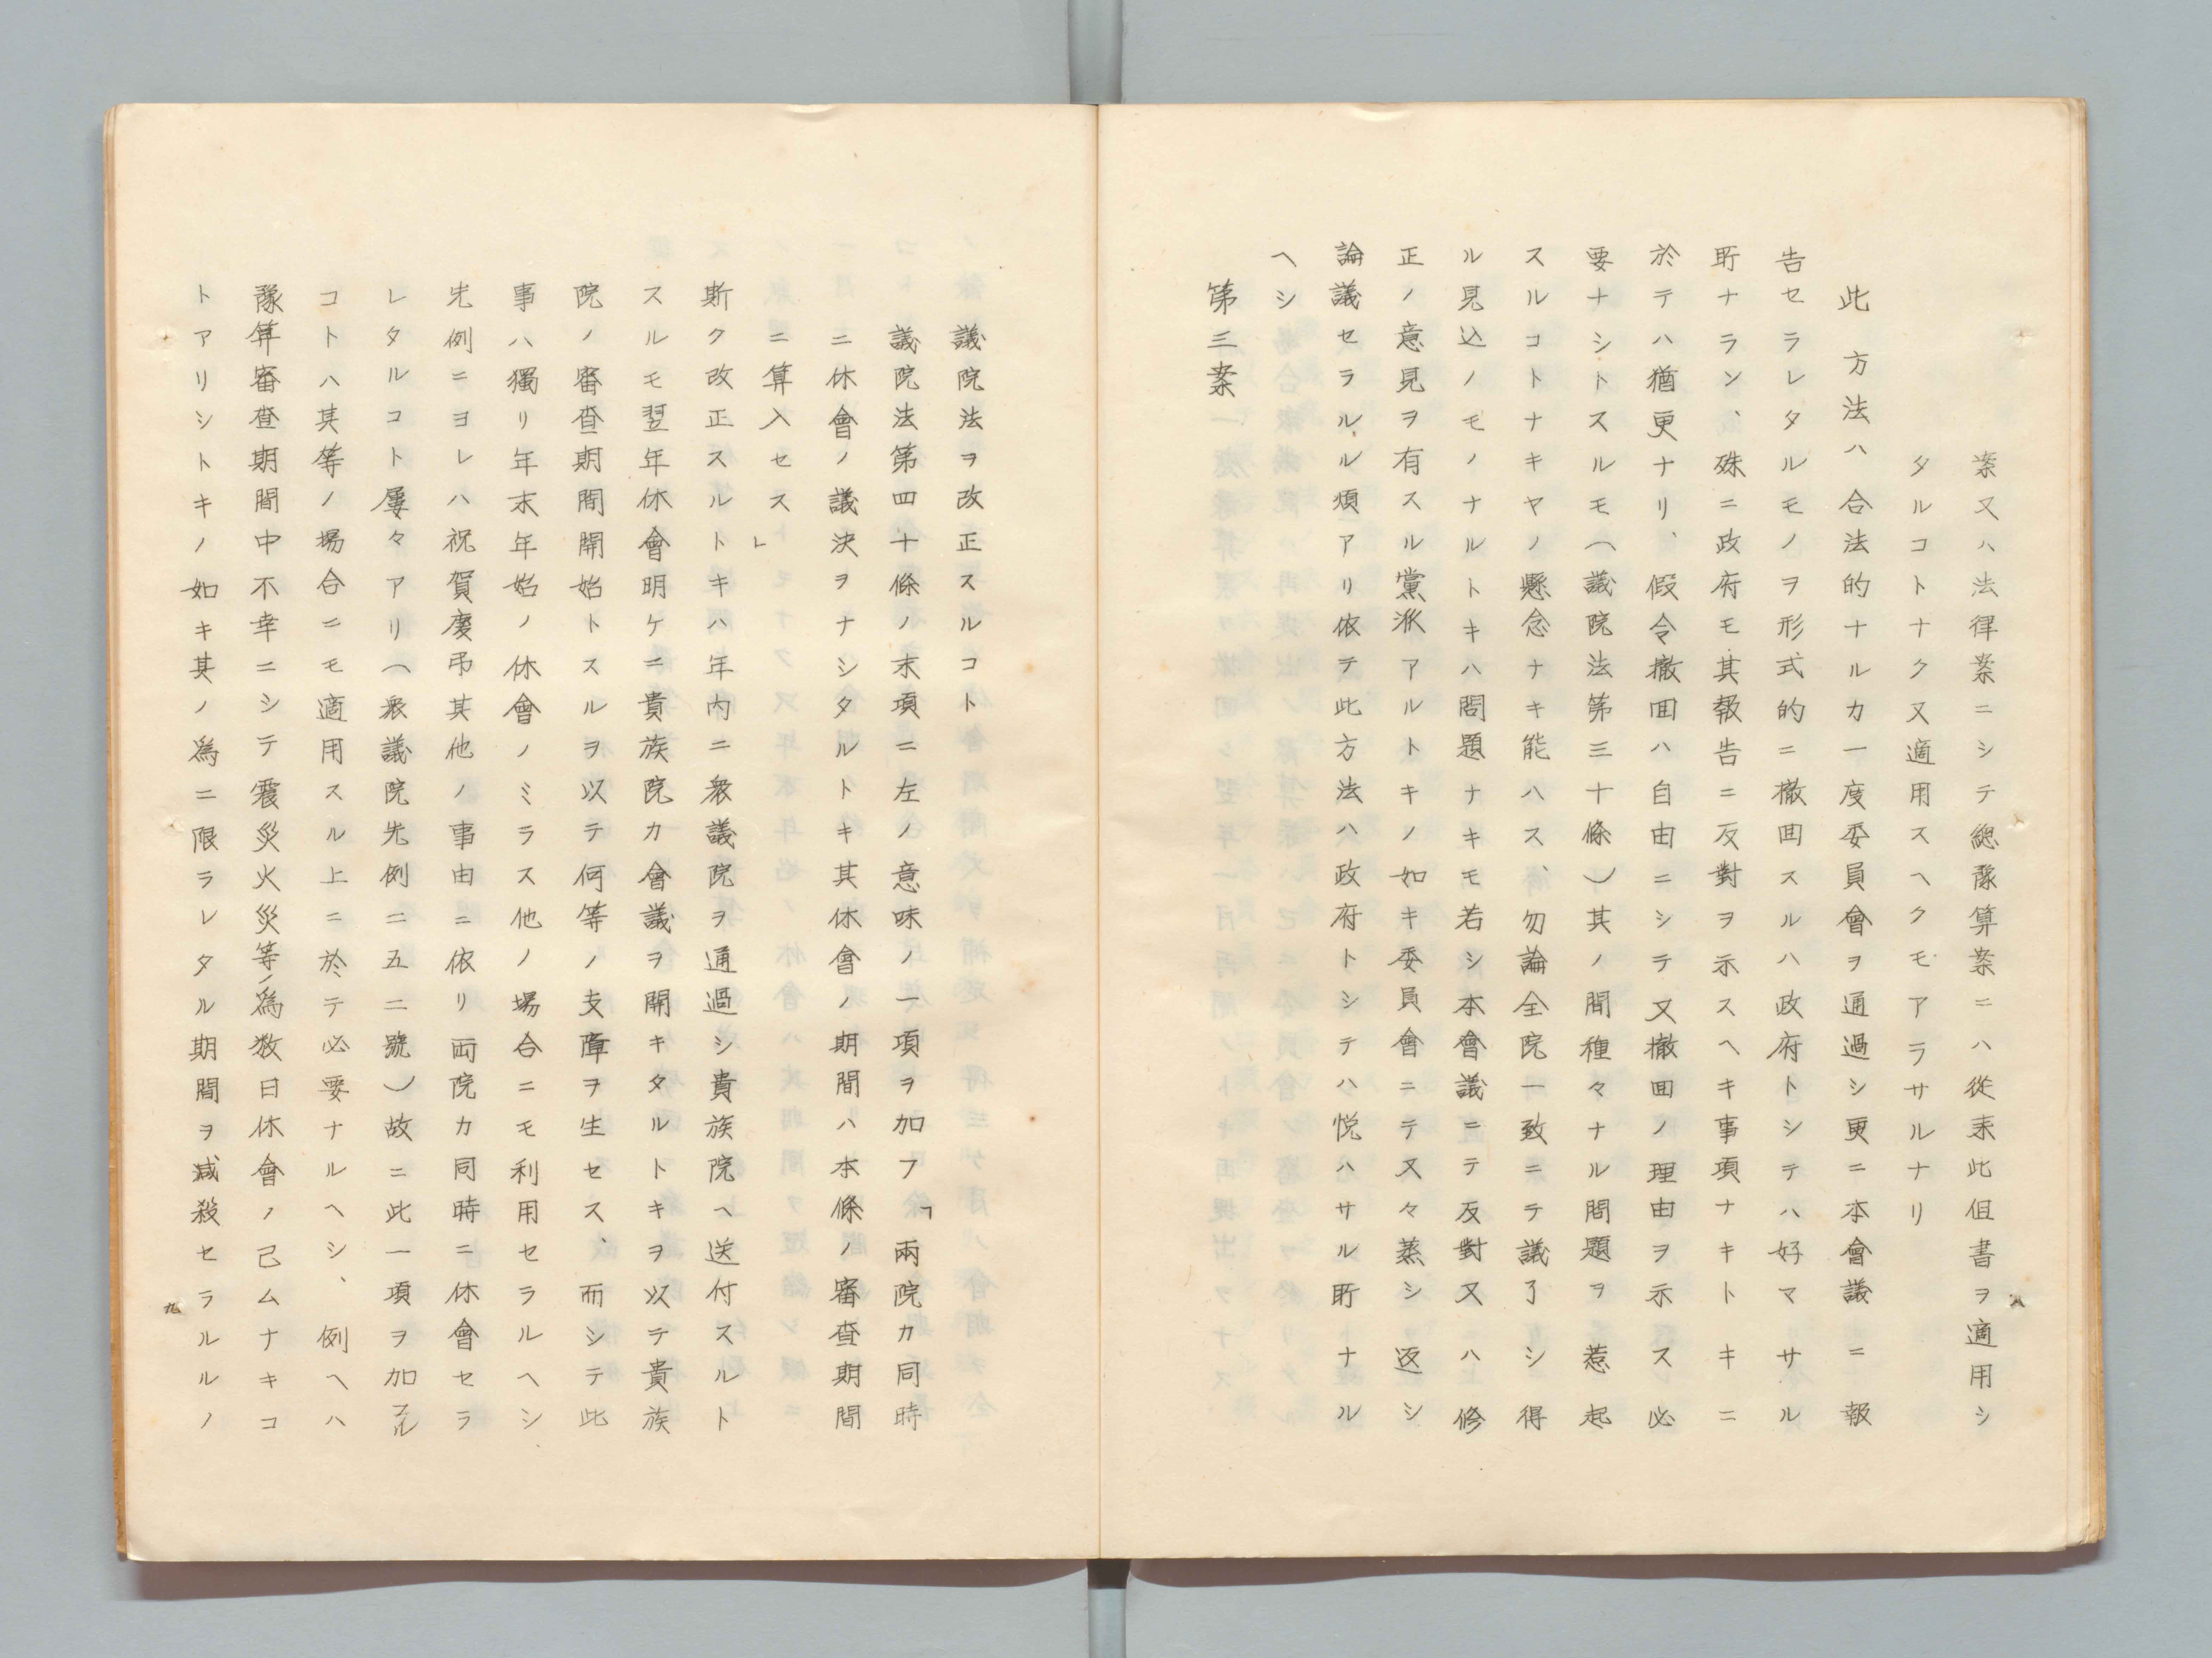 案又ハ法律案ニシテ總豫算案ニハ從来此但書ヲ適用シ
タルコトナク又適用スヘクモアラサルナリ
此方法ハ合法的ナルカ一度委員會ヲ通過シ更ニ本會議ニ報
告セラレタルモノヲ形式的ニ撤回スルハ政府トシテハ好マサル
所ナラン、殊ニ政府モ其報告ニ反對ヲ示スヘキ事項ナキトキニ
於テハ猶更ナリ、假令撤回ハ自由ニシテ又撤回ノ理由ヲ示ス必
要ナシトスルモ(議院法第三十條)其ノ間種々ナル問題ヲ惹起
スルコトナキヤノ懸念ナキ能ハス、勿論全院一致ニテ議了シ得
ル見込ノモノナルトキハ問題ナキモ若シ本會議ニテ反對又ハ修
正ノ意見ヲ有スル黨派アルトキノ如キ委員會ニテ又々蒸シ返シ
論議セラルヽル煩アリ依テ此方法ハ政府トシテハ悦ハサル所ナル
ヘシ
第三案
八
議院法ヲ改正スルコト
議院法第四十條ノ末項ニ左ノ意味ノ一項ヲ加フ「兩院カ同時
ニ休會ノ議決ヲナシタルトキ其休會ノ期間ハ本條ノ審査期間
ニ算入セス」
斯ク改正スルトキハ年内ニ衆議院ヲ通過シ貴族院ヘ送付スルト
スルモ翌年休會明ケニ貴族院カ會議ヲ開キタルトキヲ以テ貴族
院ノ審査期間開始トスルヲ以テ何等ノ支障ヲ生セス、而シテ此
事ハ獨リ年末年始ノ休會ノミラス他ノ場合ニモ利用セラルヘシ
先例ニヨレハ祝賀慶弔其他ノ事由ニ依リ両院カ同時ニ休會セラ
レタルコト屢々アリ(衆議院先例二五二號)故ニ此一項ヲ加フル
コトハ其等ノ場合ニモ適用スル上ニ於テ必要ナルヘシ、例ヘハ
豫算審査期間中不幸ニシテ震災火災等ノ為数日休會ノ己ムナキコ
トアリシトキノ如キ其ノ為ニ限ラレタル期間ヲ減殺セラルルノ
九